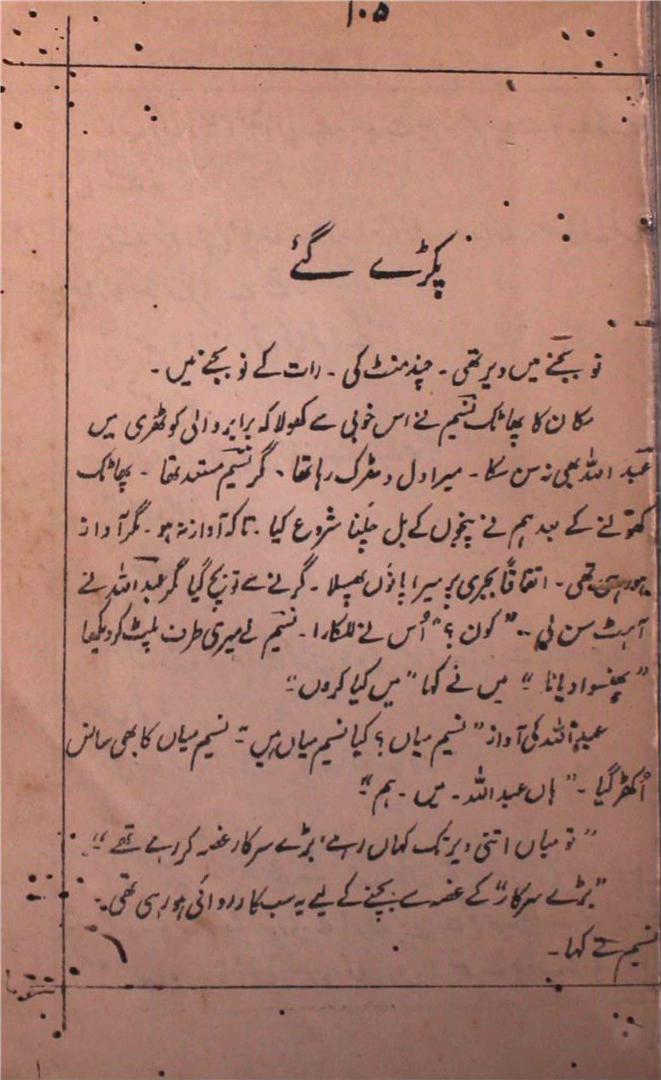 ۱۰۵
پکڑے گئے
نو بجنے میں دیر تھی ۔ چند منٹ کی ۔ رات کے نو بجے نہیں ۔
مکان کا پھاٹک نسیم نے اس خوبی سے کھولا کہ برابر والی کوٹھری میں
عبد اللہ بھی نہ سن سکا ۔ میرا دل دھڑک رہا تھا ۔ مگر نسیم مستعد تھا ۔ پھاٹک
کھولنے کے بعد ہم نے پنجوں کے بل چلنا شروع کیا ۔ تاکہ آواز نہ ہو ۔ مگر آواز
ہو رہی تھی ۔ اتفاقاً بجری پر میرا پاؤں پھسلا ۔ گرنے سے تو بچ گیا مگر عبد اللہ نے
آہٹ سن لی ۔۔ ”کون ؟“ اُس نے للکارا ۔ نسیم نے میری طرف پلٹ کر دیکھا
”پھنسوا دیا نا“ میں نے کہا ”میں کیا کروں“
عبد اللہ کی آواز ”نسیم میاں ؟ کیا نسیم میاں ہیں“ نسیم میاں کا بھی سانس
اُکھڑ گیا ۔ ”ہاں عبد اللہ ۔ میں ۔ ہم“
”تو میاں اتنی دیر تک کہاں رہے ، بڑے سرکار غصہ کر رہے تھے“
”بڑے سرکار“ کے غصہ سے بچنے کے لیے یہ سب کارروائی ہو رہی تھی ۔
نسیم نے کہا ۔